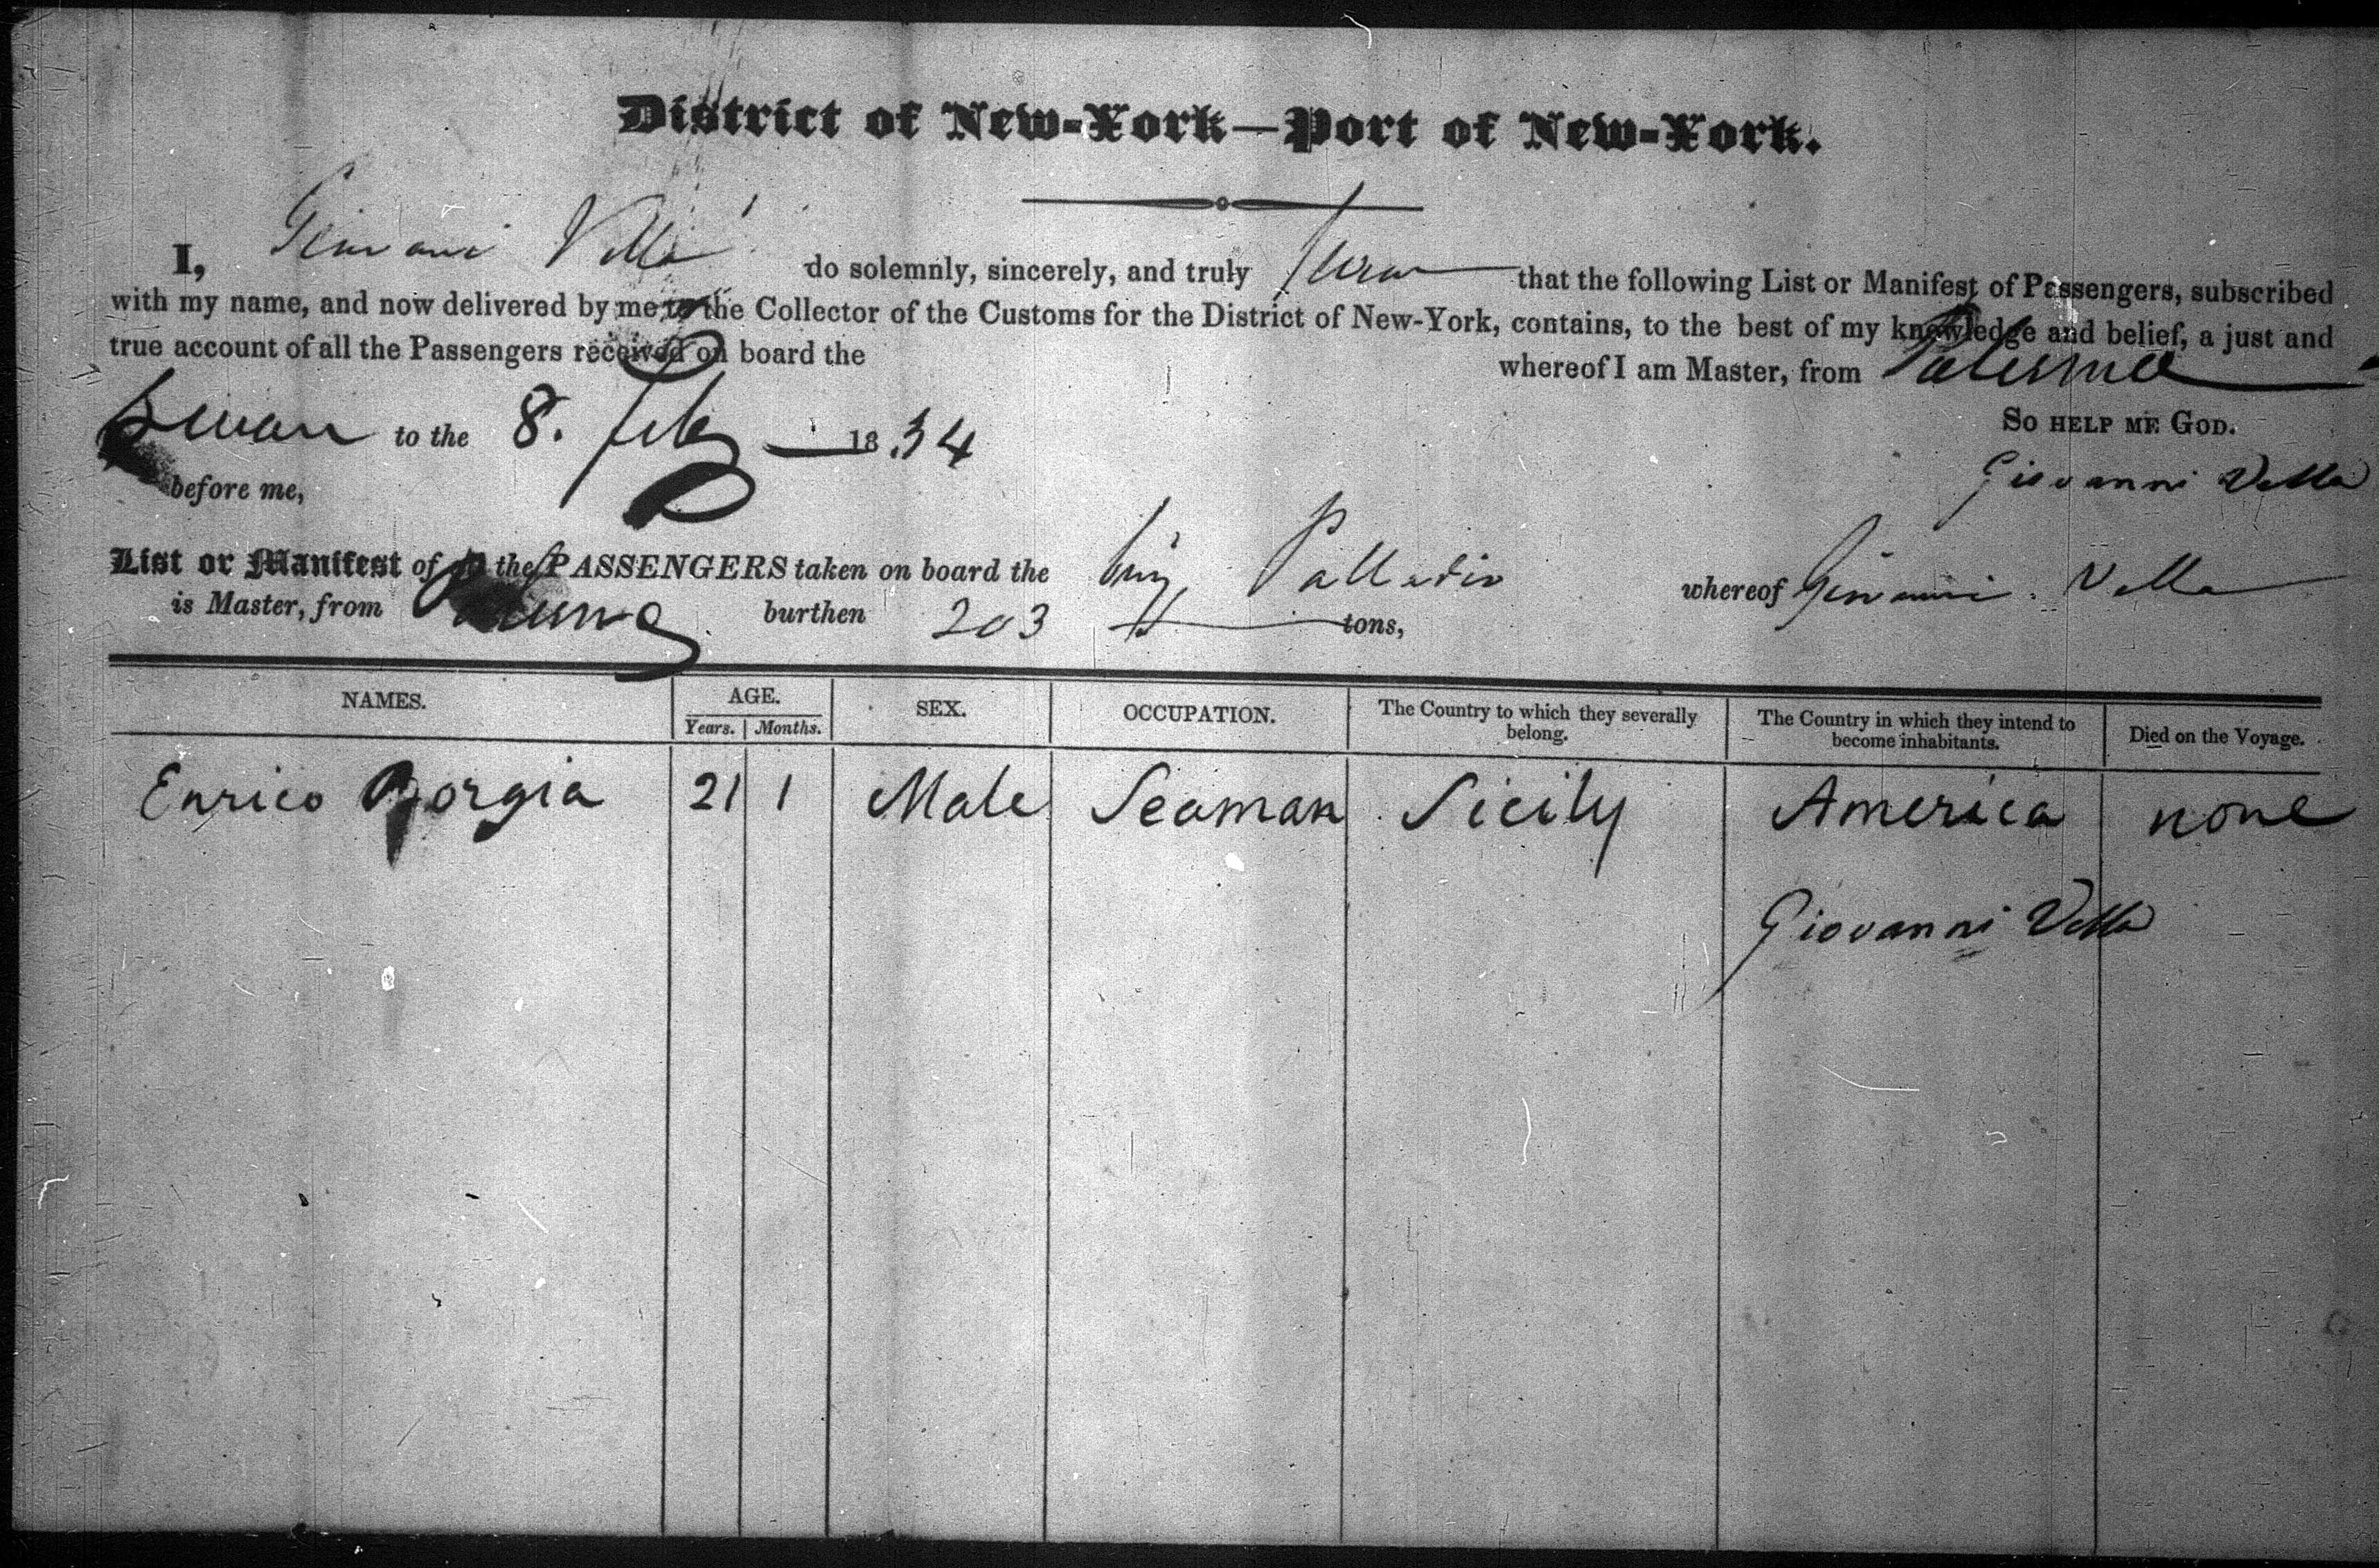 District of New-York—Port of New-York.
I, Giovanni Vella do solemnly, sincerely, and truly swear that the following List or Manifest of Passengers, subscribed
with my name, and now delivered by me to the Collector of the Customs for the District of New-York, contains, to the best of my knowledge and belief, a just and
true account of all the Passengers received on board the whereof I am Master, from Palermo
Sworn to the 8. Feby 1834 So HELP ME GOD.
before me, Giovanni Vella
List or Manifest of all the PASSENGERS taken on board the brig Palladio whereof Giovanni Vella
is Master, from burthen 203 tons,
NAMES. AGE. SEX. OCCUPATION. The Country to which they severally belong. The Country in which they intend to become inhabitants. Died on the Voyage.
Years. Months.
Enrico Borgia 21 1 Male Seaman Sicily America none
Giovanni Vella